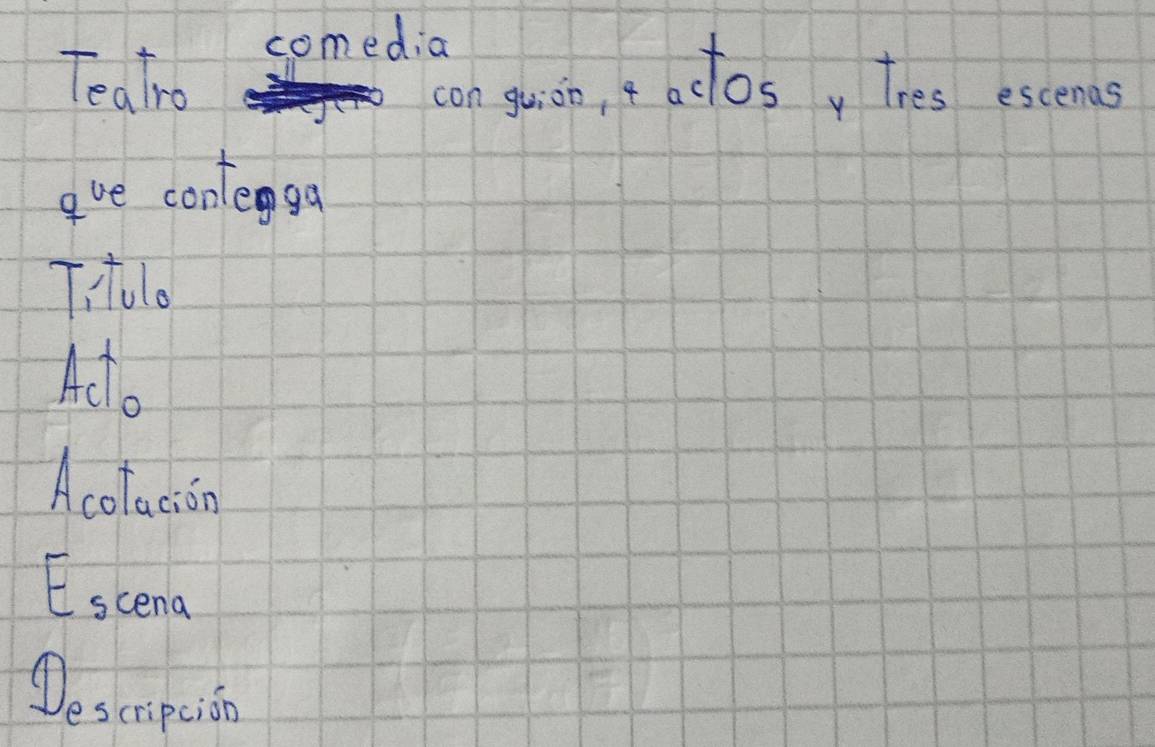 Teatro comedia con guión, 4 actos y Tres escenas
que contenga
Título
Acto
Acotación
Escena
Descripción